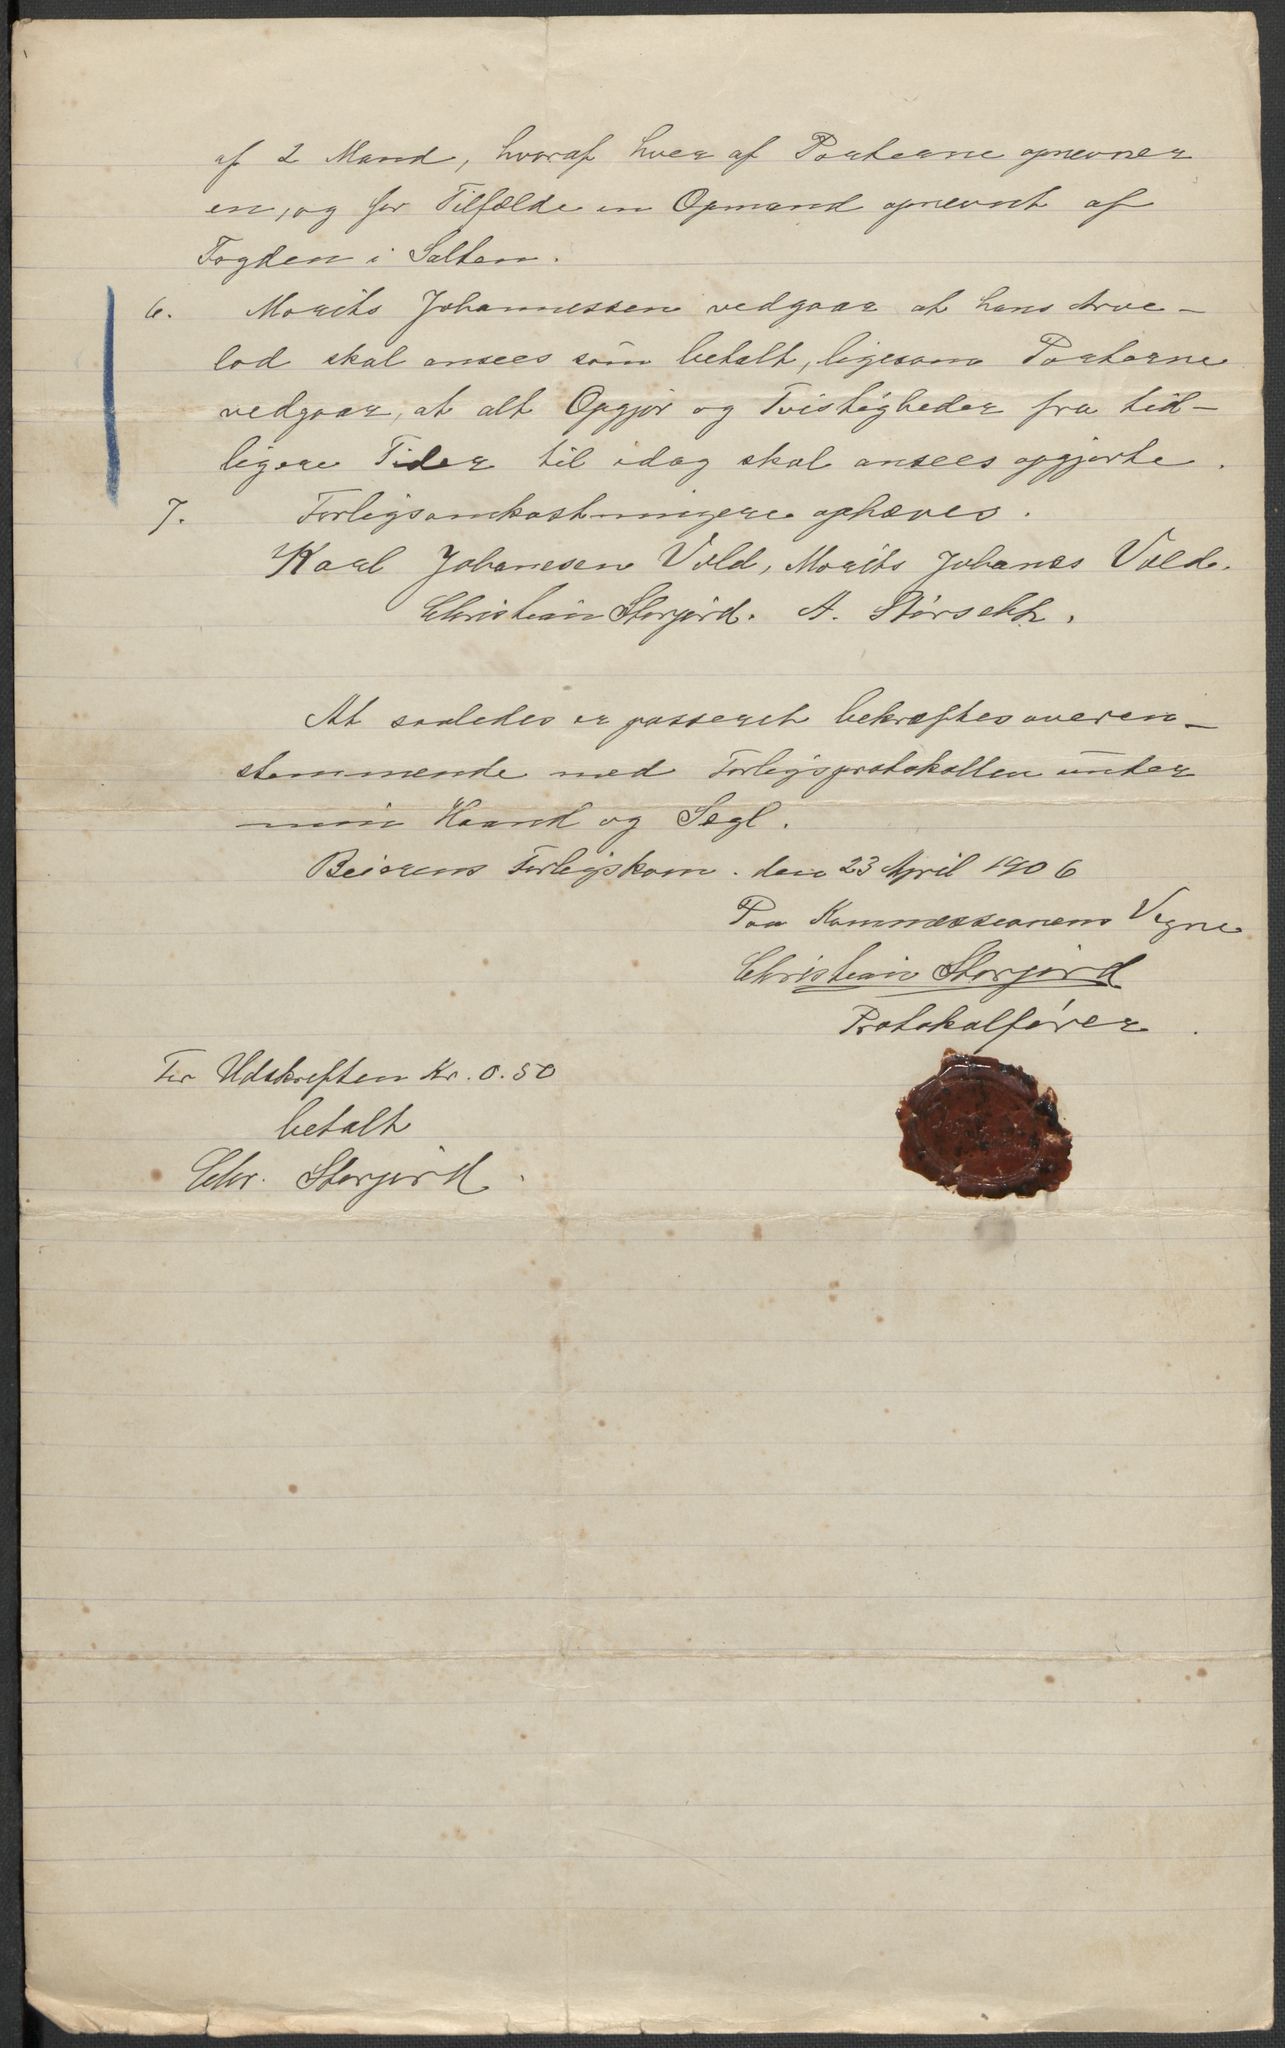 af 2 Mand, hvoraf hver af Parterne opnevner
en, og for Tilfælde en Opmand opnevnt af
Fogden i Salten.
6. Morits Johannessen vedgaar at hans Arve-
lod skal ansees som betalt, ligesom Parterne
vedgaar, at alt Opgjør og Tvistigheder fra tid-
ligere Tider til idag skal ansees opgjorte.
7. Forligsomkostningere ophæves.
Karl Johanesen Vold, Morits Johanes Vold.
Christian Storjord. A. Størsekk.
At saaledes er passeret bekræftes overen-
stemmende med Forligsprotokollen under
min Haand og Segl.
Beierens Forligskom. den 23 April 1906
Paa Kommissionens Vegne
Christian Storjord
Protokolfører.
For Udskriften Kr. 0.50
betalt
Chr. Storjord.